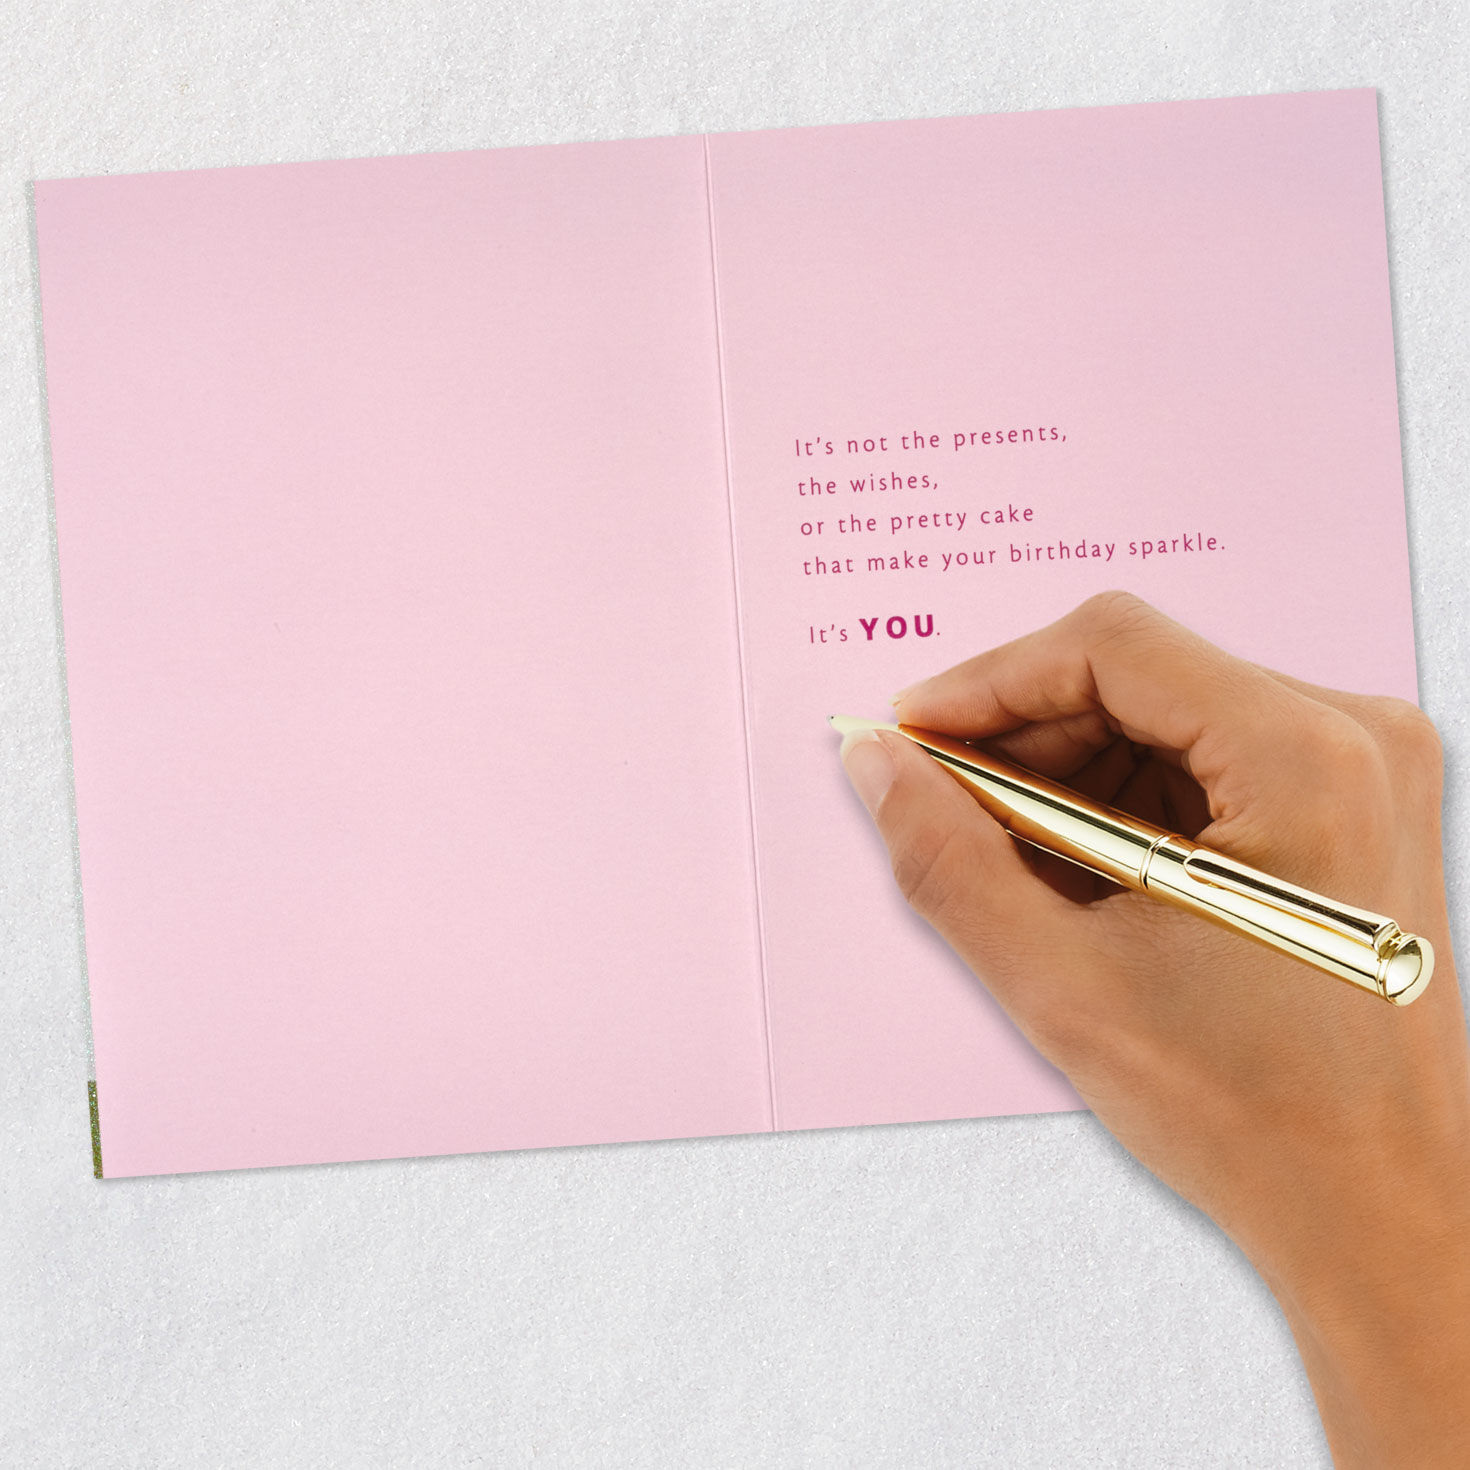 It's not the presents,
the wishes,
or the pretty cake
that make your birthday sparkle.
It's YOU.